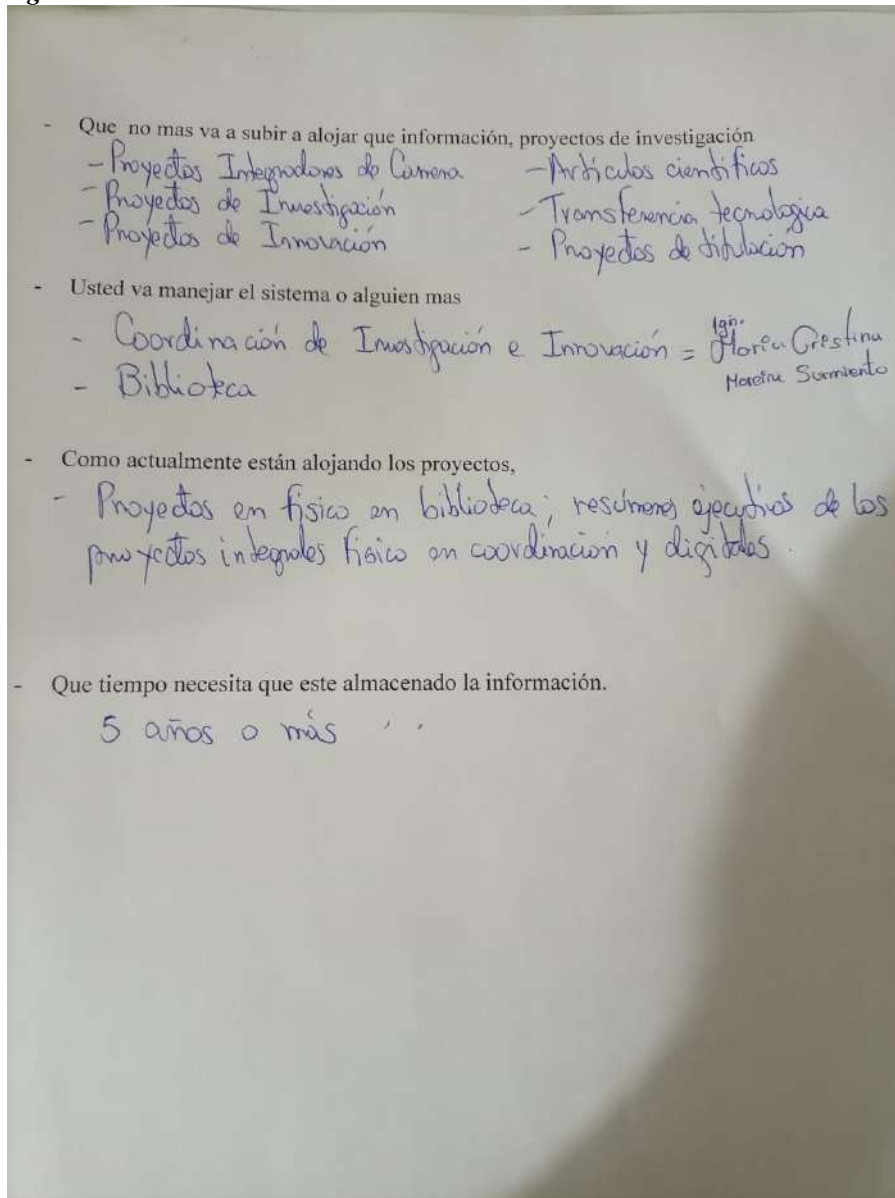 - Que no mas va a subir a alojar que información, proyectos de investigación
- Proyectos Integradores de Carrera
- Proyectos de Investigación
- Proyectos de Innovación
- Artículos científicos
- Transferencia tecnologica
- Proyectos de titulacion
- Usted va manejar el sistema o alguien mas
- Coordinación de Investigación e Innovación = Ign. Maria Crestina
Moreira Sarmiento
- Biblioteca
- Como actualmente están alojando los proyectos,
- Proyectos en fisico en biblioteca; resúmenes ejecutivos de los
proyectos integrales fisico en coordinacion y digitales.
- Que tiempo necesita que este almacenado la información.
5 años o más